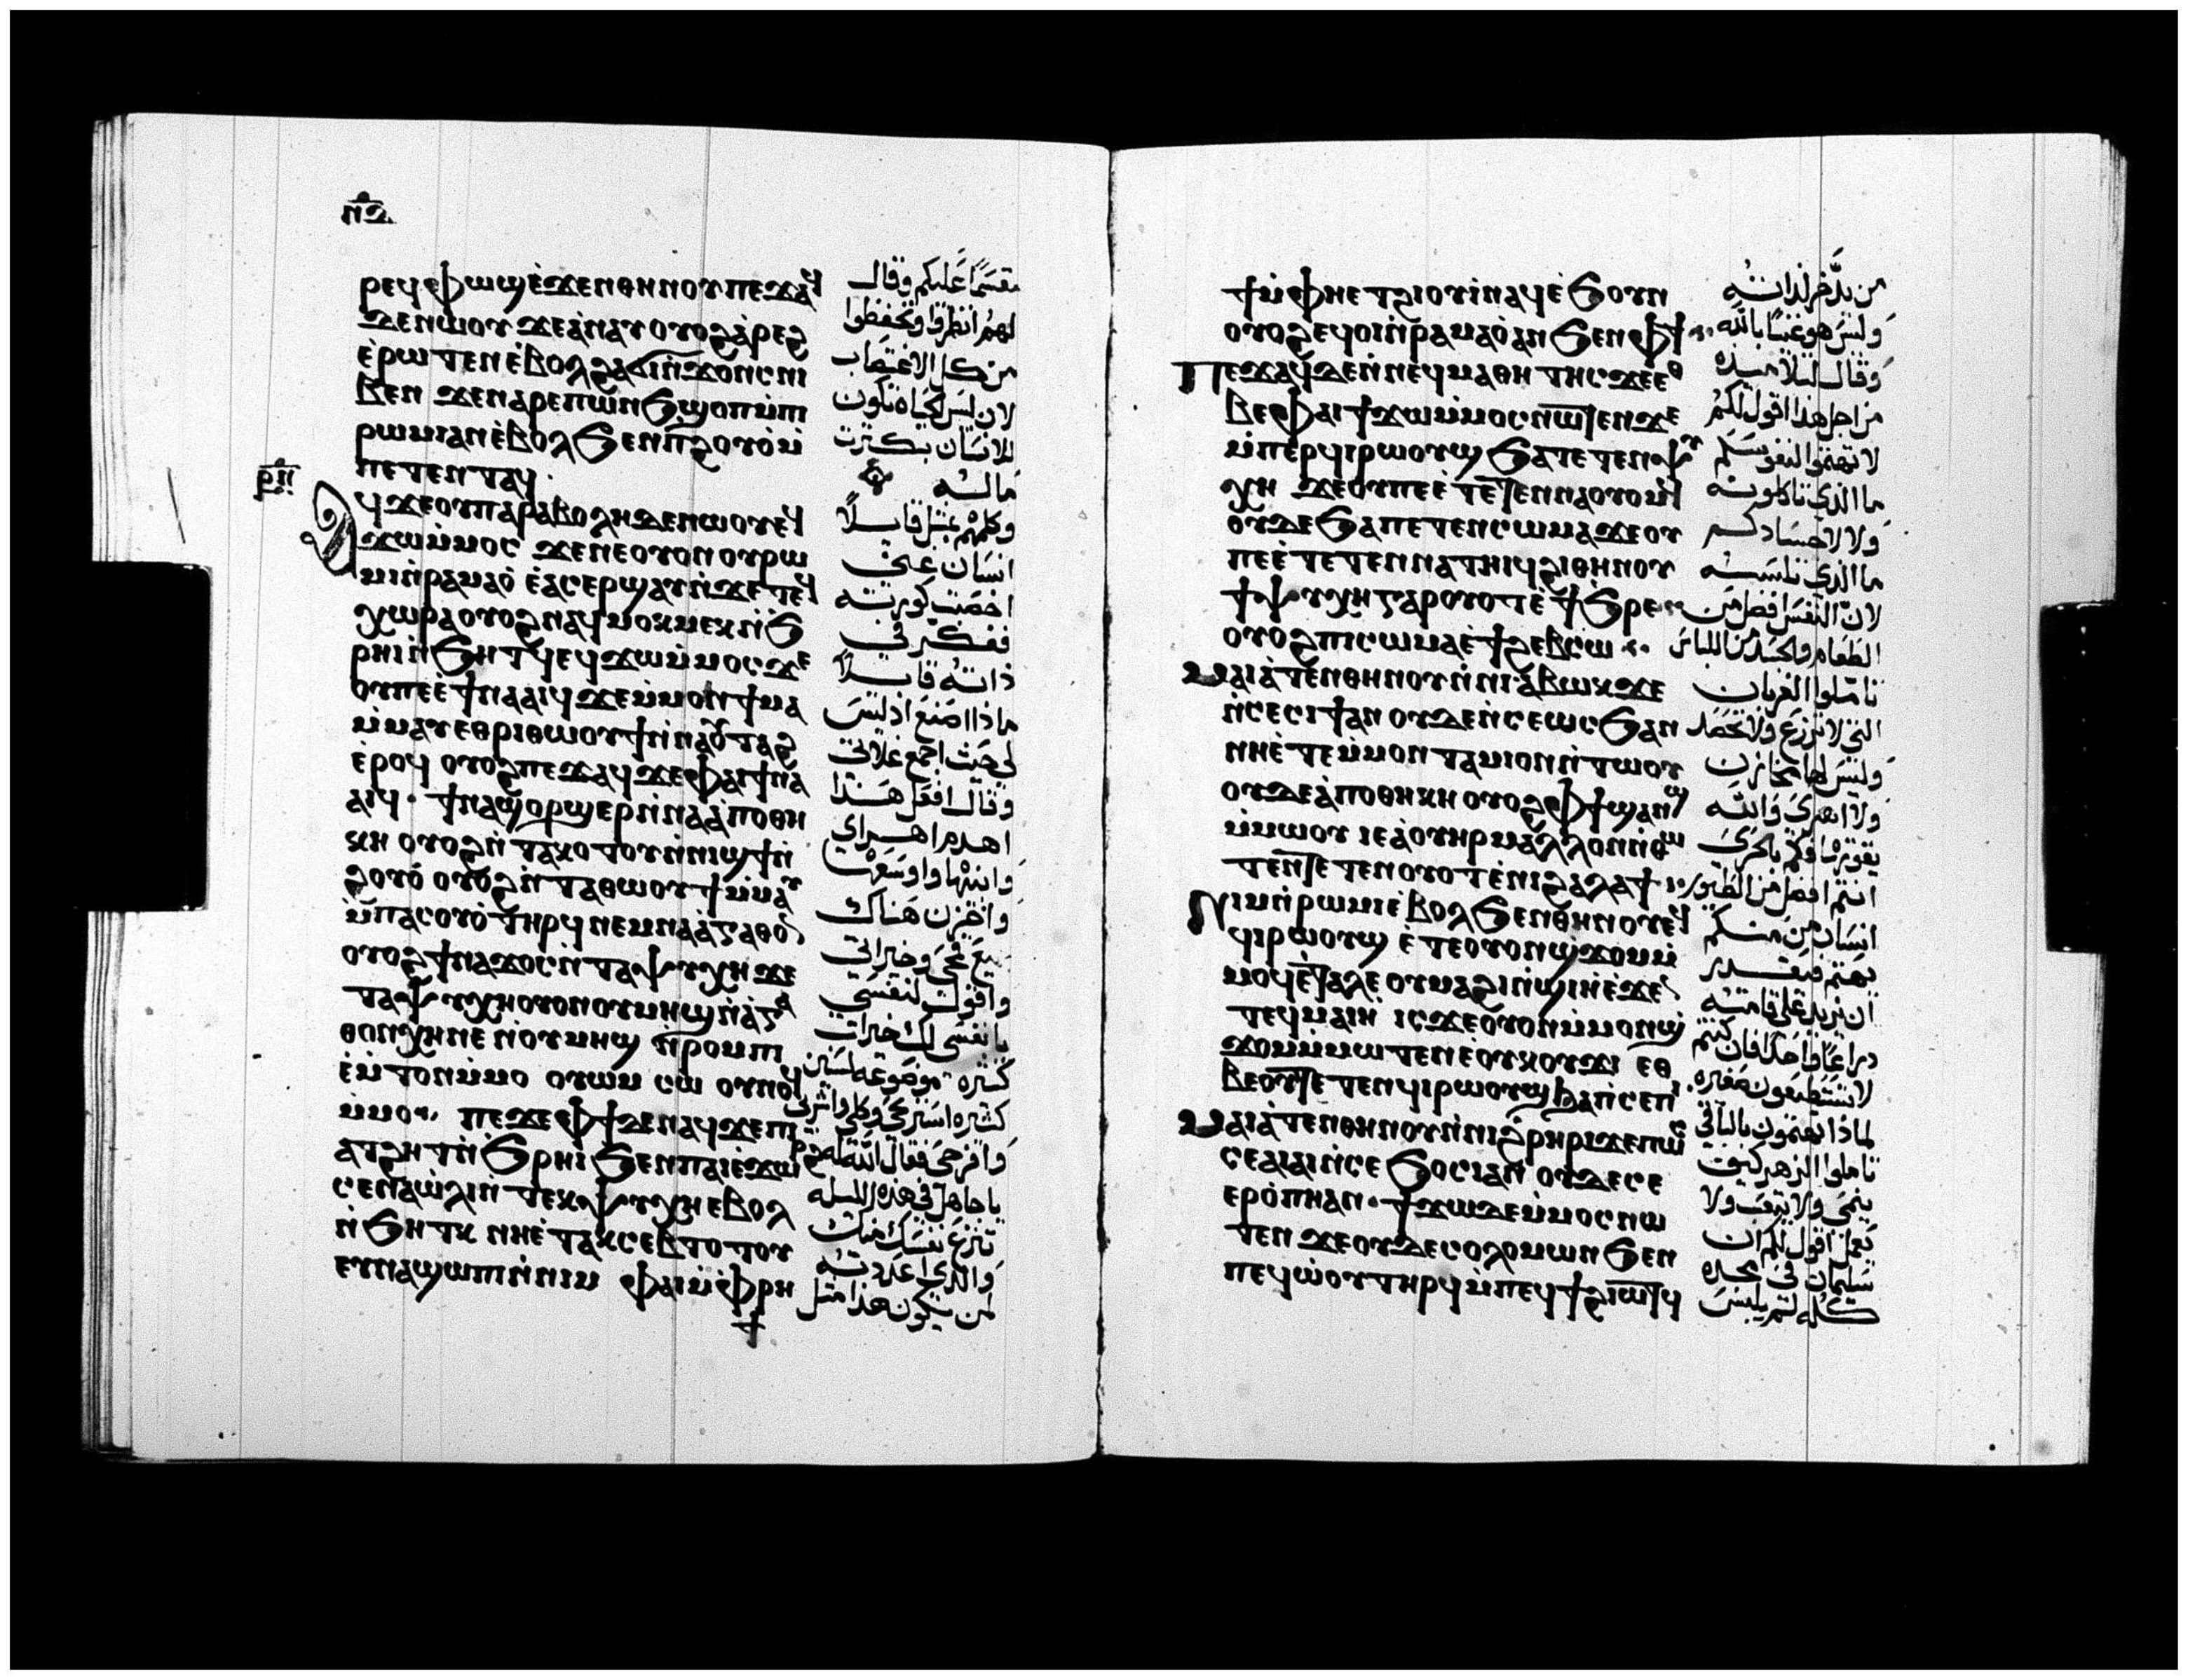 ⲣⲉϥⲫⲱϣ ⲉϫⲉⲛ ⲑⲏⲛⲟⲩ ⲡⲉϫⲁϥ
ϫⲉ ⲛⲱⲟⲩ ϫⲉ ⲁⲛⲁⲩ ⲟⲩⲟϩ ⲁⲣⲉϩ
ⲉⲣⲱⲧⲉⲛ ⲉⲃⲟⲗ ϩⲁ ϭⲓⲛϫⲟⲛⲥ ⲛⲓ
ⲃⲉⲛ ϫⲉ ⲛⲁⲣⲉ ⲡⲱⲛϧ ϣⲟⲡ ⲙⲡⲓ
ⲣⲱⲙⲓ ⲁⲛ ⲉⲃⲟⲗ ϧⲉⲛ ⲡϩⲟⲩⲟ ⲙ
ⲡⲉⲧⲉⲛⲧⲁϥ
ⲣⲛ
Ⲁϥϫⲉ ⲟⲩⲡⲁⲣⲁⲃⲟⲗⲏ ϫⲉ ⲛⲱⲟⲩ ⲉϥ
ϫⲱ ⲙⲙⲟⲥ ϫⲉ ⲛⲉ ⲟⲩⲟⲛ ⲟⲩⲣⲱ
ⲙⲓ ⲛⲣⲁⲙⲁⲟ ⲉⲁⲥⲉⲣϣⲁⲩ ⲛϫⲉ ⲧⲉϥ
ⲭⲱⲣⲁ ⲟⲩⲟϩ ⲛⲁϥⲙⲟⲕⲙⲉⲕ ⲛϧ
ⲣⲏⲓ ⲛϧⲏⲧϥ ⲉϥϫⲱ ⲙⲙⲟⲥ ϫⲉ
ⲟⲩ ⲡⲉⲉϯⲛⲁⲁⲓϥ ϫⲉ ⲙⲙⲟⲛϯ ⲙⲁ
ⲙⲙⲁⲩ ⲉⲑⲣⲓⲑⲱⲟⲩϯ ⲛⲛⲁⲟⲩⲧⲁϩ
ⲉⲣⲟϥ ⲟⲩⲟϩ ⲡⲉϫⲁϥ ϫⲉ ⲫⲁⲓ ϯⲛⲁ
ⲁⲓϥ ϯⲛⲁϣⲟⲣϣⲉⲣ ⲛⲛⲁⲁⲡⲟⲑⲏ
ⲕⲏ ⲟⲩⲟϩ ⲛⲧⲁⲕⲟⲧⲟⲩ ⲛⲛⲓϣϯ ⲛ
ϩⲟⲩⲟ ⲟⲩⲟϩ ⲛⲧⲁⲑⲱⲟⲩϯ ⲙⲙⲁⲩ
ⲙⲡⲁⲥⲟⲩⲟ ⲧⲏⲣϥ ⲛⲉⲙ ⲛⲁⲁⲅⲁⲑⲟⲛ
ⲟⲩⲟϩ ϯⲛⲁϫⲟⲥ ⲛⲧⲁⲯⲩⲭⲏ ϫⲉ
ⲧⲁⲯⲩⲭⲏ ⲟⲩⲟⲛ ⲟⲩⲙⲏϣ ⲛⲁⲅⲁ
ⲑⲟⲛ ⲭⲏ ⲛⲉ ⲛⲟⲩⲙⲏϣ ⲛⲣⲟⲙⲡⲓ
ⲉⲙⲧⲟⲛ ⲙⲙⲟ ⲟⲩⲱⲙ ⲥⲱ ⲟⲩⲛⲟϥ
ⲙⲙⲟ ⲡⲉϫⲉ ⲫϯ ϫⲉ ⲛⲁϥ ϫⲉ ⲡⲓ
ⲁⲧϩⲏⲧ ⲛϧⲣⲏⲓ ϧⲉⲛ ⲡⲁⲓⲉϫⲱⲣϩ
ⲥⲉⲛⲁⲱⲗⲓ ⲛⲧⲉⲕⲯⲩⲭⲏ ⲉⲃⲟⲗ
ⲛϧⲏⲧⲕ ⲛⲏ ⲉⲧⲁⲕⲥⲉⲃⲧⲱⲧⲟⲩ
ⲉⲩⲛⲁϣⲱⲡⲓ ⲛⲛⲓⲙ ⲫⲁⲓ ⲙⲫⲣⲏ
مقسمًا عليكم وقال
لهم انظروا وتحفظوا
من كل الاغتصاب
لان ليس لحياة تكون
للانسان بكثرت
ماله
وكلمهم بمثل قايلاً
انسان غني
اخصبت كورته
ففكر في
ذاته قايلاً
ماذا اصنع اذ ليس
لي حيث اجمع غلاتي
وقال افعل هذا
اهدم اهراي
وابنيها واوسعها
واخزن هناك
قمحي وخيراتي
واقول لنفسي
يا نفسي لك خيرات
كثيره موضوعه لسنين
كثيره استريحي وكلي واشربي
وافرحي فقال الله له
يا جاهل في هذه الليله
تنزع نفسك منك
والذي اعددته
لمن يكون هذا مثل
ϯ ⲙⲫⲏ ⲉⲧϩⲓⲟⲩⲓ ⲛⲁϥ ⲉϧⲟⲩⲛ
ⲟⲩⲟϩ ⲉϥⲟⲓ ⲛⲣⲁⲙⲁⲟ ⲁⲛ ϧⲉⲛ ⲫϯ
Ⲡⲉϫⲁϥ ϫⲉ ⲛⲛⲉϥⲙⲁⲑⲏⲧⲏⲥ ϫⲉ ⲉⲑ
ⲃⲉ ⲫⲁⲓ ϯϫⲱ ⲙⲙⲟⲥ ⲛⲱⲧⲉⲛ ϫⲉ
ⲙⲡⲉⲣϥⲓⲣⲱⲟⲩϣ ϧⲁ ⲧⲉⲧⲉⲛⲯⲩ
ⲭⲏ ϫⲉ ⲟⲩ ⲡⲉⲉⲧⲉⲧⲉⲛⲛⲁⲟⲩⲟⲙϥ
ⲟⲩⲇⲉ ϧⲁ ⲡⲉⲧⲉⲛⲥⲱⲙⲁ ϫⲉ ⲟⲩ
ⲡⲉⲉⲧⲉⲧⲉⲛⲛⲁⲧⲏⲓϥ ϩⲓ ⲑⲏⲛⲟⲩ
ϯⲯⲩⲭⲏ ⲅⲁⲣ ⲟⲩⲟⲧ ⲉϯϧⲣⲉ
ⲟⲩⲟϩ ⲡⲓⲥⲱⲙⲁ ⲉϯϩⲉⲃⲥⲱ
Ⲙⲁⲓⲁⲧⲉⲛ ⲑⲏⲛⲟⲩ ⲛⲛⲓⲁⲃⲱⲕ ϫⲉ
ⲛⲥⲉⲥⲓϯ ⲁⲛ ⲟⲩⲇⲉ ⲛⲥⲉⲱⲥϧ ⲁⲛ
ⲛⲏ ⲉⲧⲉ ⲙⲙⲟⲛ ⲧⲁⲙⲓⲟⲛ ⲛⲧⲱⲟⲩ
ⲟⲩⲇⲉ ⲁⲡⲟⲑⲏⲕⲏ ⲟⲩⲟϩ ⲫϯ ϣⲁⲛϣ
ⲙⲙⲱⲟⲩ ⲓⲉ ⲁⲟⲩⲏⲣ ⲙⲁⲗⲗⲟⲛ ⲛⲑⲱ
ⲧⲉⲛ ⲧⲉⲧⲉⲛⲟⲩⲟⲧ ⲉⲛⲓϩⲁⲗⲁϯ
Ⲛⲓⲙ ⲛⲣⲱⲙⲓ ⲉⲃⲟⲗ ϧⲉⲛ ⲑⲏⲛⲟⲩ ⲉϥ
ϥⲓⲣⲱⲟⲩϣ ⲉⲧⲉ ⲟⲩⲟⲛϣϫⲟⲙ ⲙ
ⲙⲟϥ ⲉⲧⲁⲗⲉ ⲟⲩⲙⲁϩⲓ ⲛϣⲓⲏ ⲉϫⲉⲛ
ⲧⲉϥⲙⲁⲓⲏ ⲓⲥϫⲉ ⲟⲩⲟⲛ ⲙⲙⲟⲛϣ
ϫⲟⲙ ⲙⲙⲱⲧⲉⲛ ⲉⲟⲩⲕⲟⲩϫⲓ ⲉⲑ
ⲃⲉ ⲟⲩ ⲧⲉⲧⲉⲛϥⲓⲣⲱⲟⲩϣ ϧⲁ ⲡⲥⲉⲡⲓ
Ⲙⲁⲓⲁⲧⲉⲛ ⲑⲏⲛⲟⲩ ⲛⲛⲓϩⲣⲏⲣⲓ ϫⲉ ⲡⲱⲥ
ⲥⲉⲁⲓⲁⲓ ⲛⲥⲉϧⲟⲥⲓ ⲁⲛ ⲟⲩⲇⲉ ⲥⲉ
ⲉⲣϩⲱⲃ ⲁⲛ ϯϫⲱ ⲇⲉ ⲙⲙⲟⲥ ⲛⲱ
ⲧⲉⲛ ϫⲉ ⲟⲩⲇⲉ ⲥⲟⲗⲟⲙⲱⲛ ϧⲉⲛ
ⲡⲉϥⲱⲟⲩ ⲧⲏⲣϥ ⲙⲡⲉϥϯϩⲓⲱⲧϥ
من يدخر لذاته
وليس هو غنيًا بالله
وقال لتلاميذه
من اجل هذا اقول لكم
لا تهتموا لنفوسكم
ما الذي تاكلونه
ولا لاجسادكم
ما الذي تلبسه
لان النفس افضل من
الطعام والجسد من اللباس
تاملوا الغربان
التي لا تزرع ولا تحصد
وليس لها مخازن
ولا اهرى والله
يقوتها فكم بالحرى
انتم افضل من الطيور
انسان من منكم
يهتم فيقدر
ان يزيد على قامته
دراعًا واحدًا فان كنتم
لا تستطيعون صغيره
لماذا تهتمون بالباقي
تاملوا الزهر كيف
ينمى ولا يتعب ولا
يعمل اقول لكم ان
سليمان في مجده
كله لم يلبس